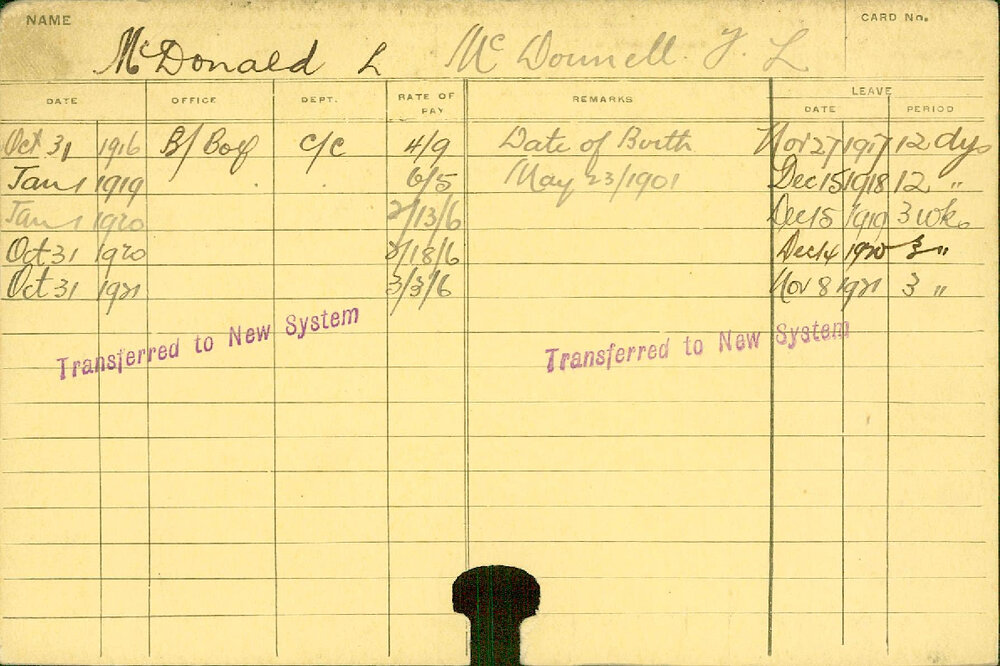 NAME
CARD No.
McDonald L McDonnell. L
DATE OFFICE DEPT. RATE OF PAY REMARKS LEAVE
DATE PERIOD
Oct 31 1916 B/Box C/C 4/9 Date of Birth Nov 27 1917 12 dys
Jan 1 1919 6/5 May 23/1901 Dec 15 1918 12 "
Jan 1 1920 2/13/6 Dec 15 1919 3 wks
Oct 31 1920 2/18/6 Dec 14 1920 3 "
Oct 31 1921 3/3/6 Nov 8 1921 3 "
Transferred to New System Transferred to New System